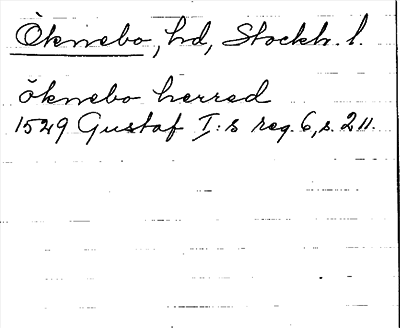 Öknebo, hd, Stockh. l.
öknebo herred
1529 Gustaf I:s reg. 6, s. 211.